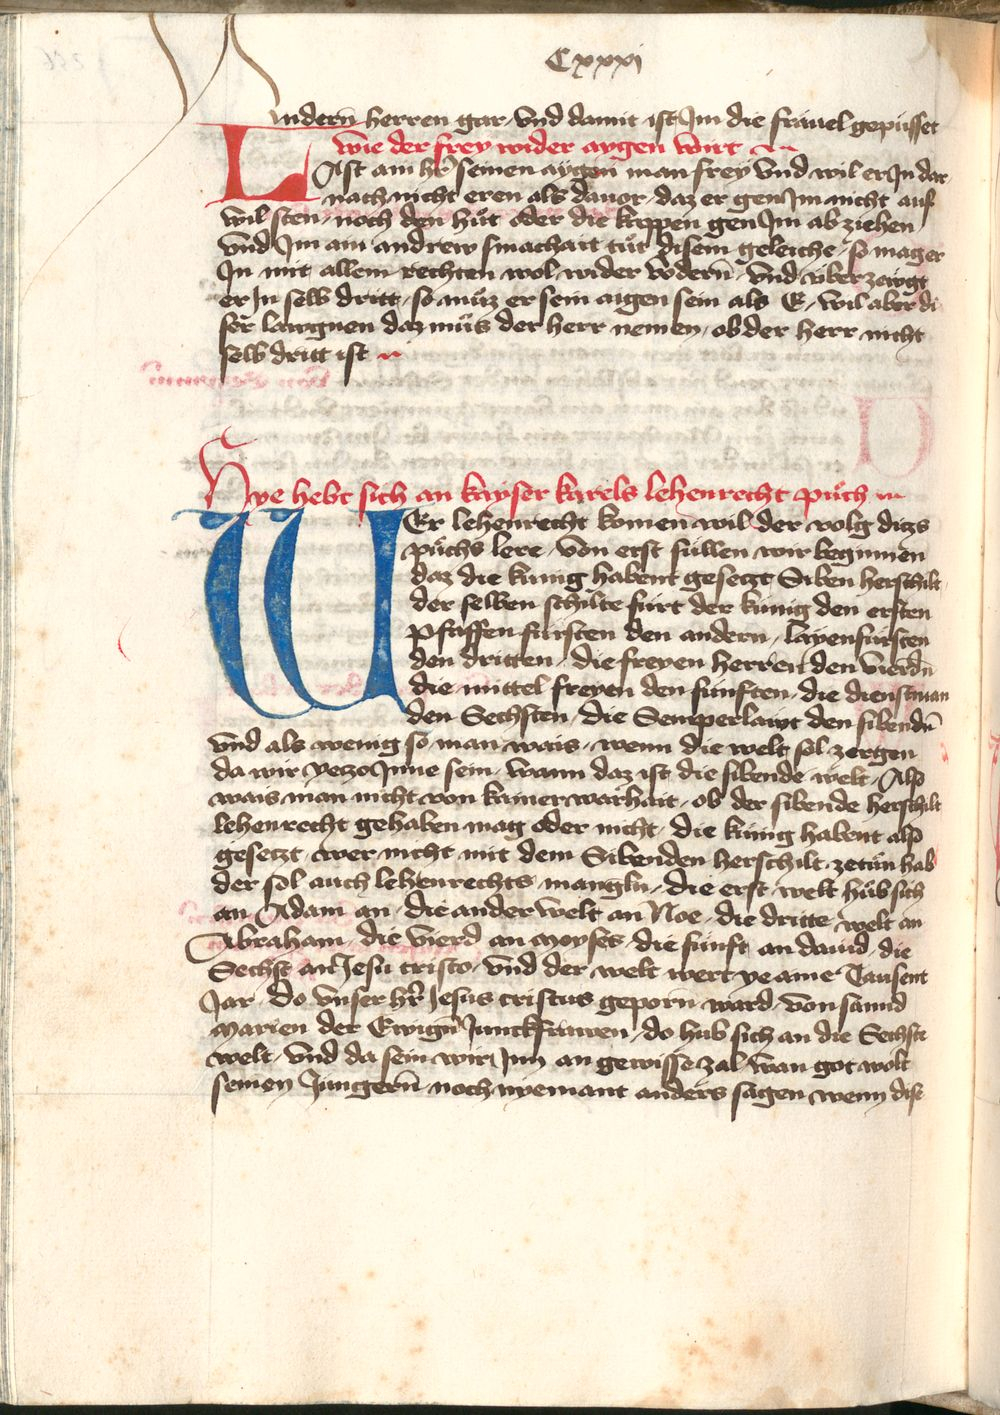 Cxxxj
Andern herren gar vnd damit ist Jm die fräuel gepüsset
wie der frey wider aygen wirt
LAst am hr̄ seinen aÿgen man freÿ vnd wil er Jn dar
nach nicht eren als dauor daz er gen Jm nicht auf
wil sten noch den hůt oder die kappen gen Jm ab ziehen
vnd Jm am andrew smachait tůt disem geleiche so mag er
Jn mit allem rechten wol wider vodern̄ vnd überzewgt
er Jn selb dritt so můz er sein aigen sein als E wil aber di
ser lawgnen daz můs der herr nemen ob der herr nicht
selb dritt ist
Hye hebt sich an kayser karels lehenrecht půch
WEr lehenrecht komen wil der volg ditzs
půchs lere von erst süllen wir beginnen
daz die künig habent gesetzt Siben herschilt
der selben schilte fürt der künig den ersten
pfaffen fürsten den andern layenfürsten
den dritten die freyen herren den vierdn̄
die mittel freyen den fünften die dienstman
den Sechsten die Semperlawt den sibendn̄
vnd als wenig so man wais wenn die welt sol zergen
da wir yetzo Jnne sein wann daz ist die sibende welt Also
wais man nicht von kainer warhait ob der sibende herschilt
lehenrecht gehaben mag oder nicht die künig habent also
gesetzt wer nicht mit dem Sibenden herschilt zetůn hab
der sol auch lehenrechts mangln die erst welt hůb sich
an Adam an die ander welt an Noe die dritte welt an
Abraham die vierd an moyses die fünft an dauid die
Sechst an Jesu cristo vnd der welt wert ye aine Tausent
Jar do vnser hr̄ Jesus cristus geporn ward von sannd
marien der Ewign̄ Junckfrawen do hub sich an die Sechste
welt vnd da sein wir Jnn an gewisse zal wan got wolt
seinen Jungern̄ noch nyemant anders sagen wenn dise